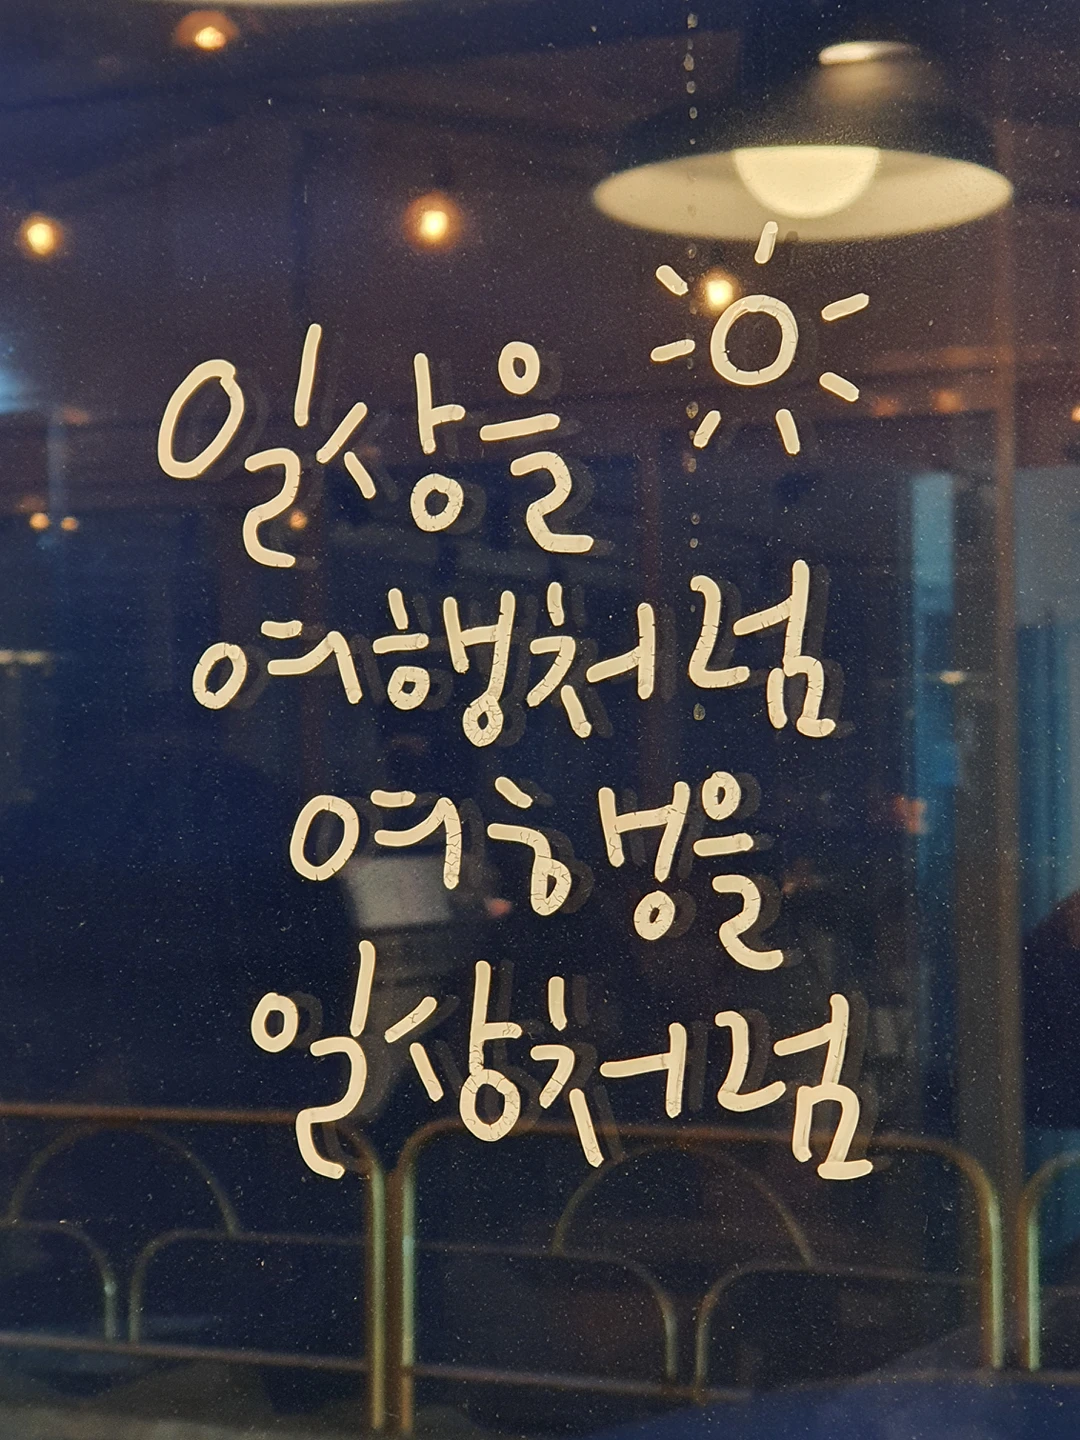 일상을
여행처럼
여행을
일상처럼